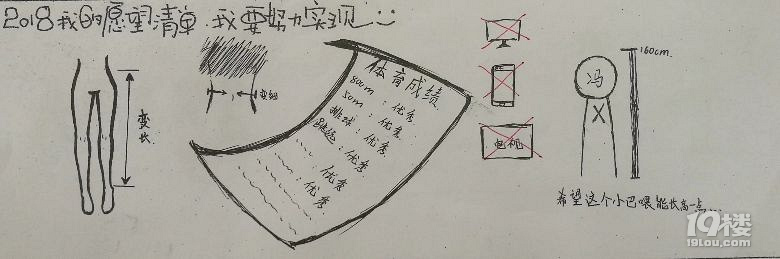 2018我的愿望清单.我要努力实现
变长
变细
体育成绩
800m:优秀
50m:优秀.
排球:优秀.
跳绳:优秀
优秀
:优秀.
电视
冯
X
160cm.
希望这个小巴喂能长高一点...
19楼
19lou.com